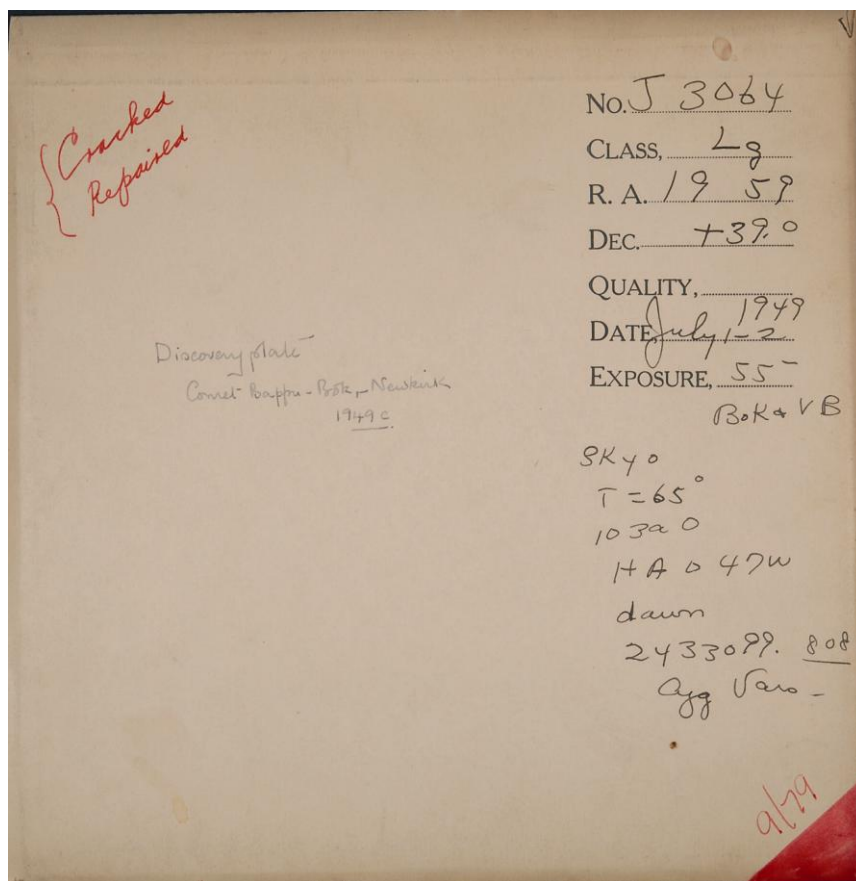 Cracked
Repaired
No. J 3064
CLASS, Lg
R. A. 19 59
DEC. +39.0
QUALITY,
1949
DATE July 1-2
EXPOSURE, 55
Bok & VB
Discovery plate
Comet Bappu-Bok-Newkirk
1949 c
Sky 0
T = 65°
103a O
HA 0 47W
dawn
2433099. 808
Cyg Vars
9/79